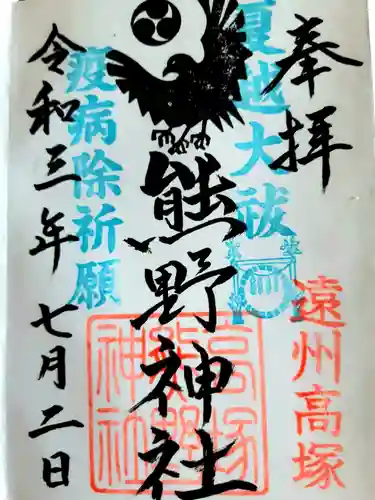 奉拝
夏越大祓
遠州高塚
熊野神社
高塚熊野神社
疫病除祈願
令和三年七月二日